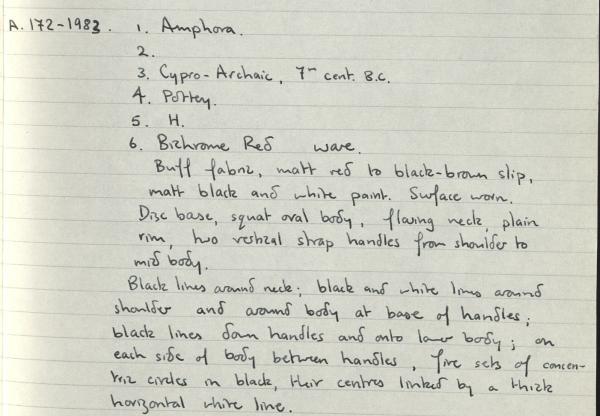 A.172-1983. 1. Amphora.
2.
3. Cypro-Archaic, 7th cent. B.C.
4. Pottery.
5. H.
6. Bichrome Red ware.
Buff fabric, matt red to black-brown slip,
matt black and white paint. Surface worn.
Disc base, squat oval body, flaring neck, plain
rim, two vertical strap handles from shoulder to
mid body.
Black lines around neck; black and white lines around
shoulder and around body at base of handles;
black lines down handles and onto lower body; on
each side of body between handles, five sets of concen-
tric circles in black, their centres linked by a thick
horizontal white line.